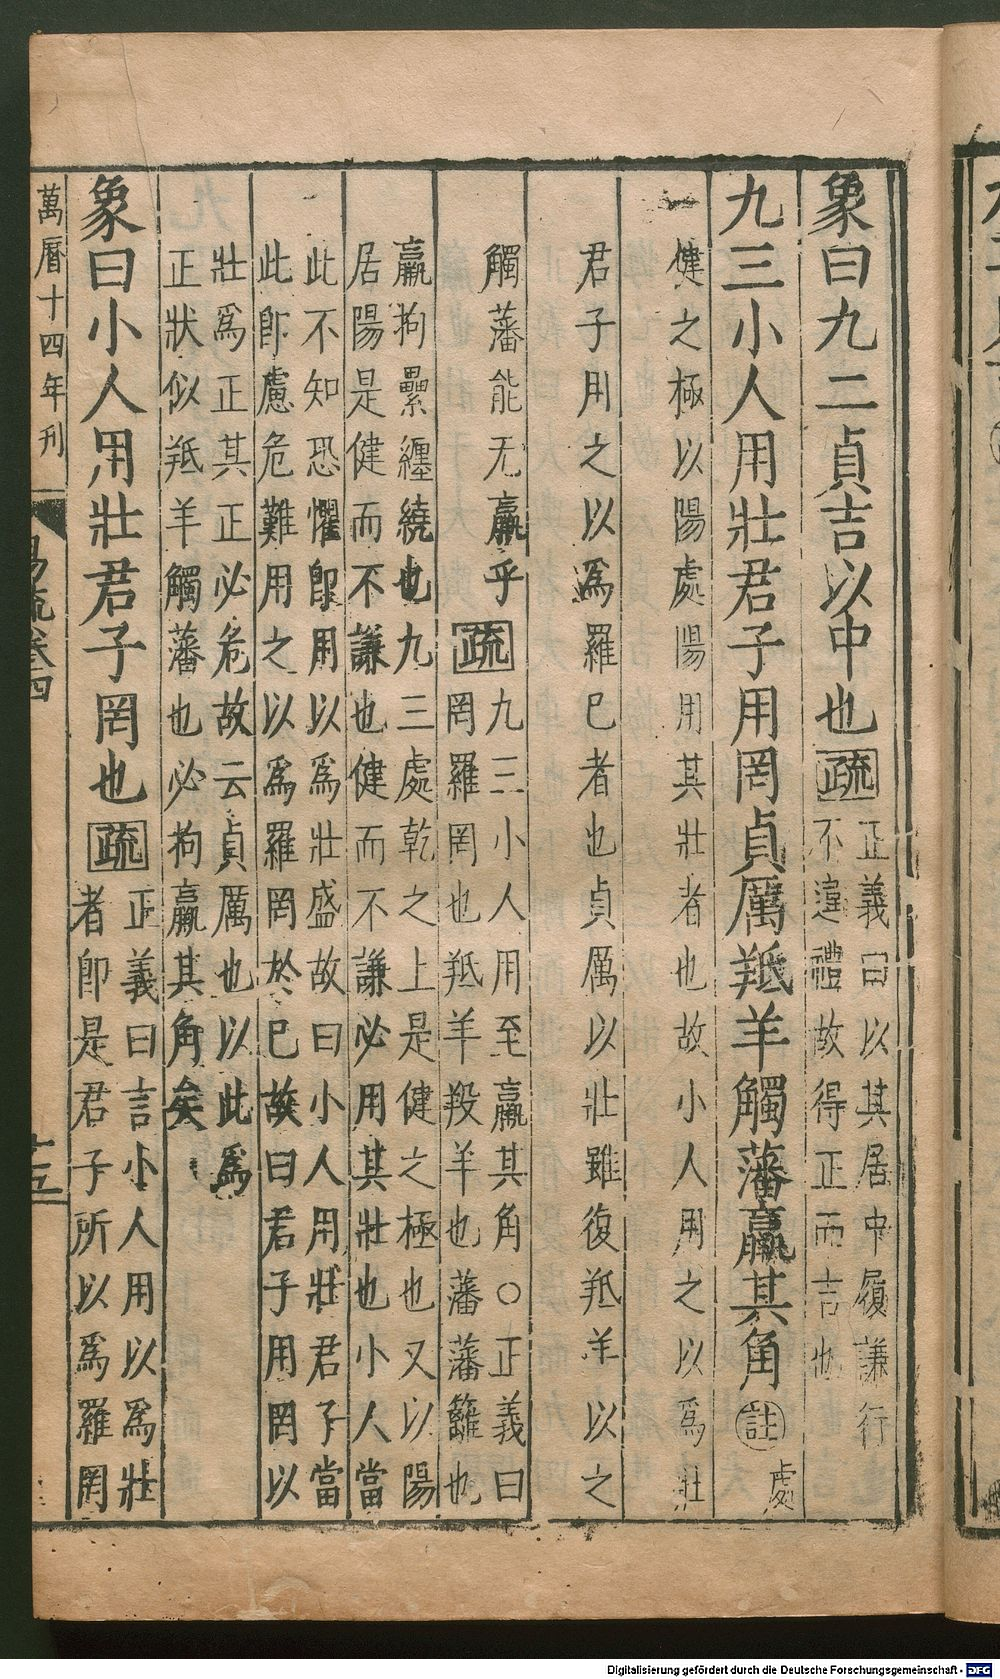 象曰九二貞吉以中也疏正義曰以其居中履謙行
不違禮故得正而吉也
九三小人用壯君子用罔貞厲羝羊觸藩羸其角註處
健之極以陽處陽用其壯者也故小人用之以爲壯
君子用之以爲羅已者也貞厲以壯雖復羝羊以之
觸藩能无羸乎疏九三小人用至羸其角○正義曰
罔羅罔也羝羊羖羊也藩藩籬也
羸拘纍纏繞也九三處乾之上是健之極也又以陽
居陽是健而不謙也健而不謙必用其壯也小人當
此不知恐懼卽用以爲壯盛故曰小人用壯君子當
此卽慮危難用之以爲羅罔於已故曰君子用罔以
壯爲正其正必危故云貞厲也以此爲
正狀似羝羊觸藩也必拘羸其角矣
象曰小人用壯君子罔也疏正義曰言小人用以爲壯
者卽是君子所以爲羅罔
萬曆十四年刊
易疏卷四
Digitalisierung gefördert durch die Deutsche Forschungsgemeinschaft - DFG